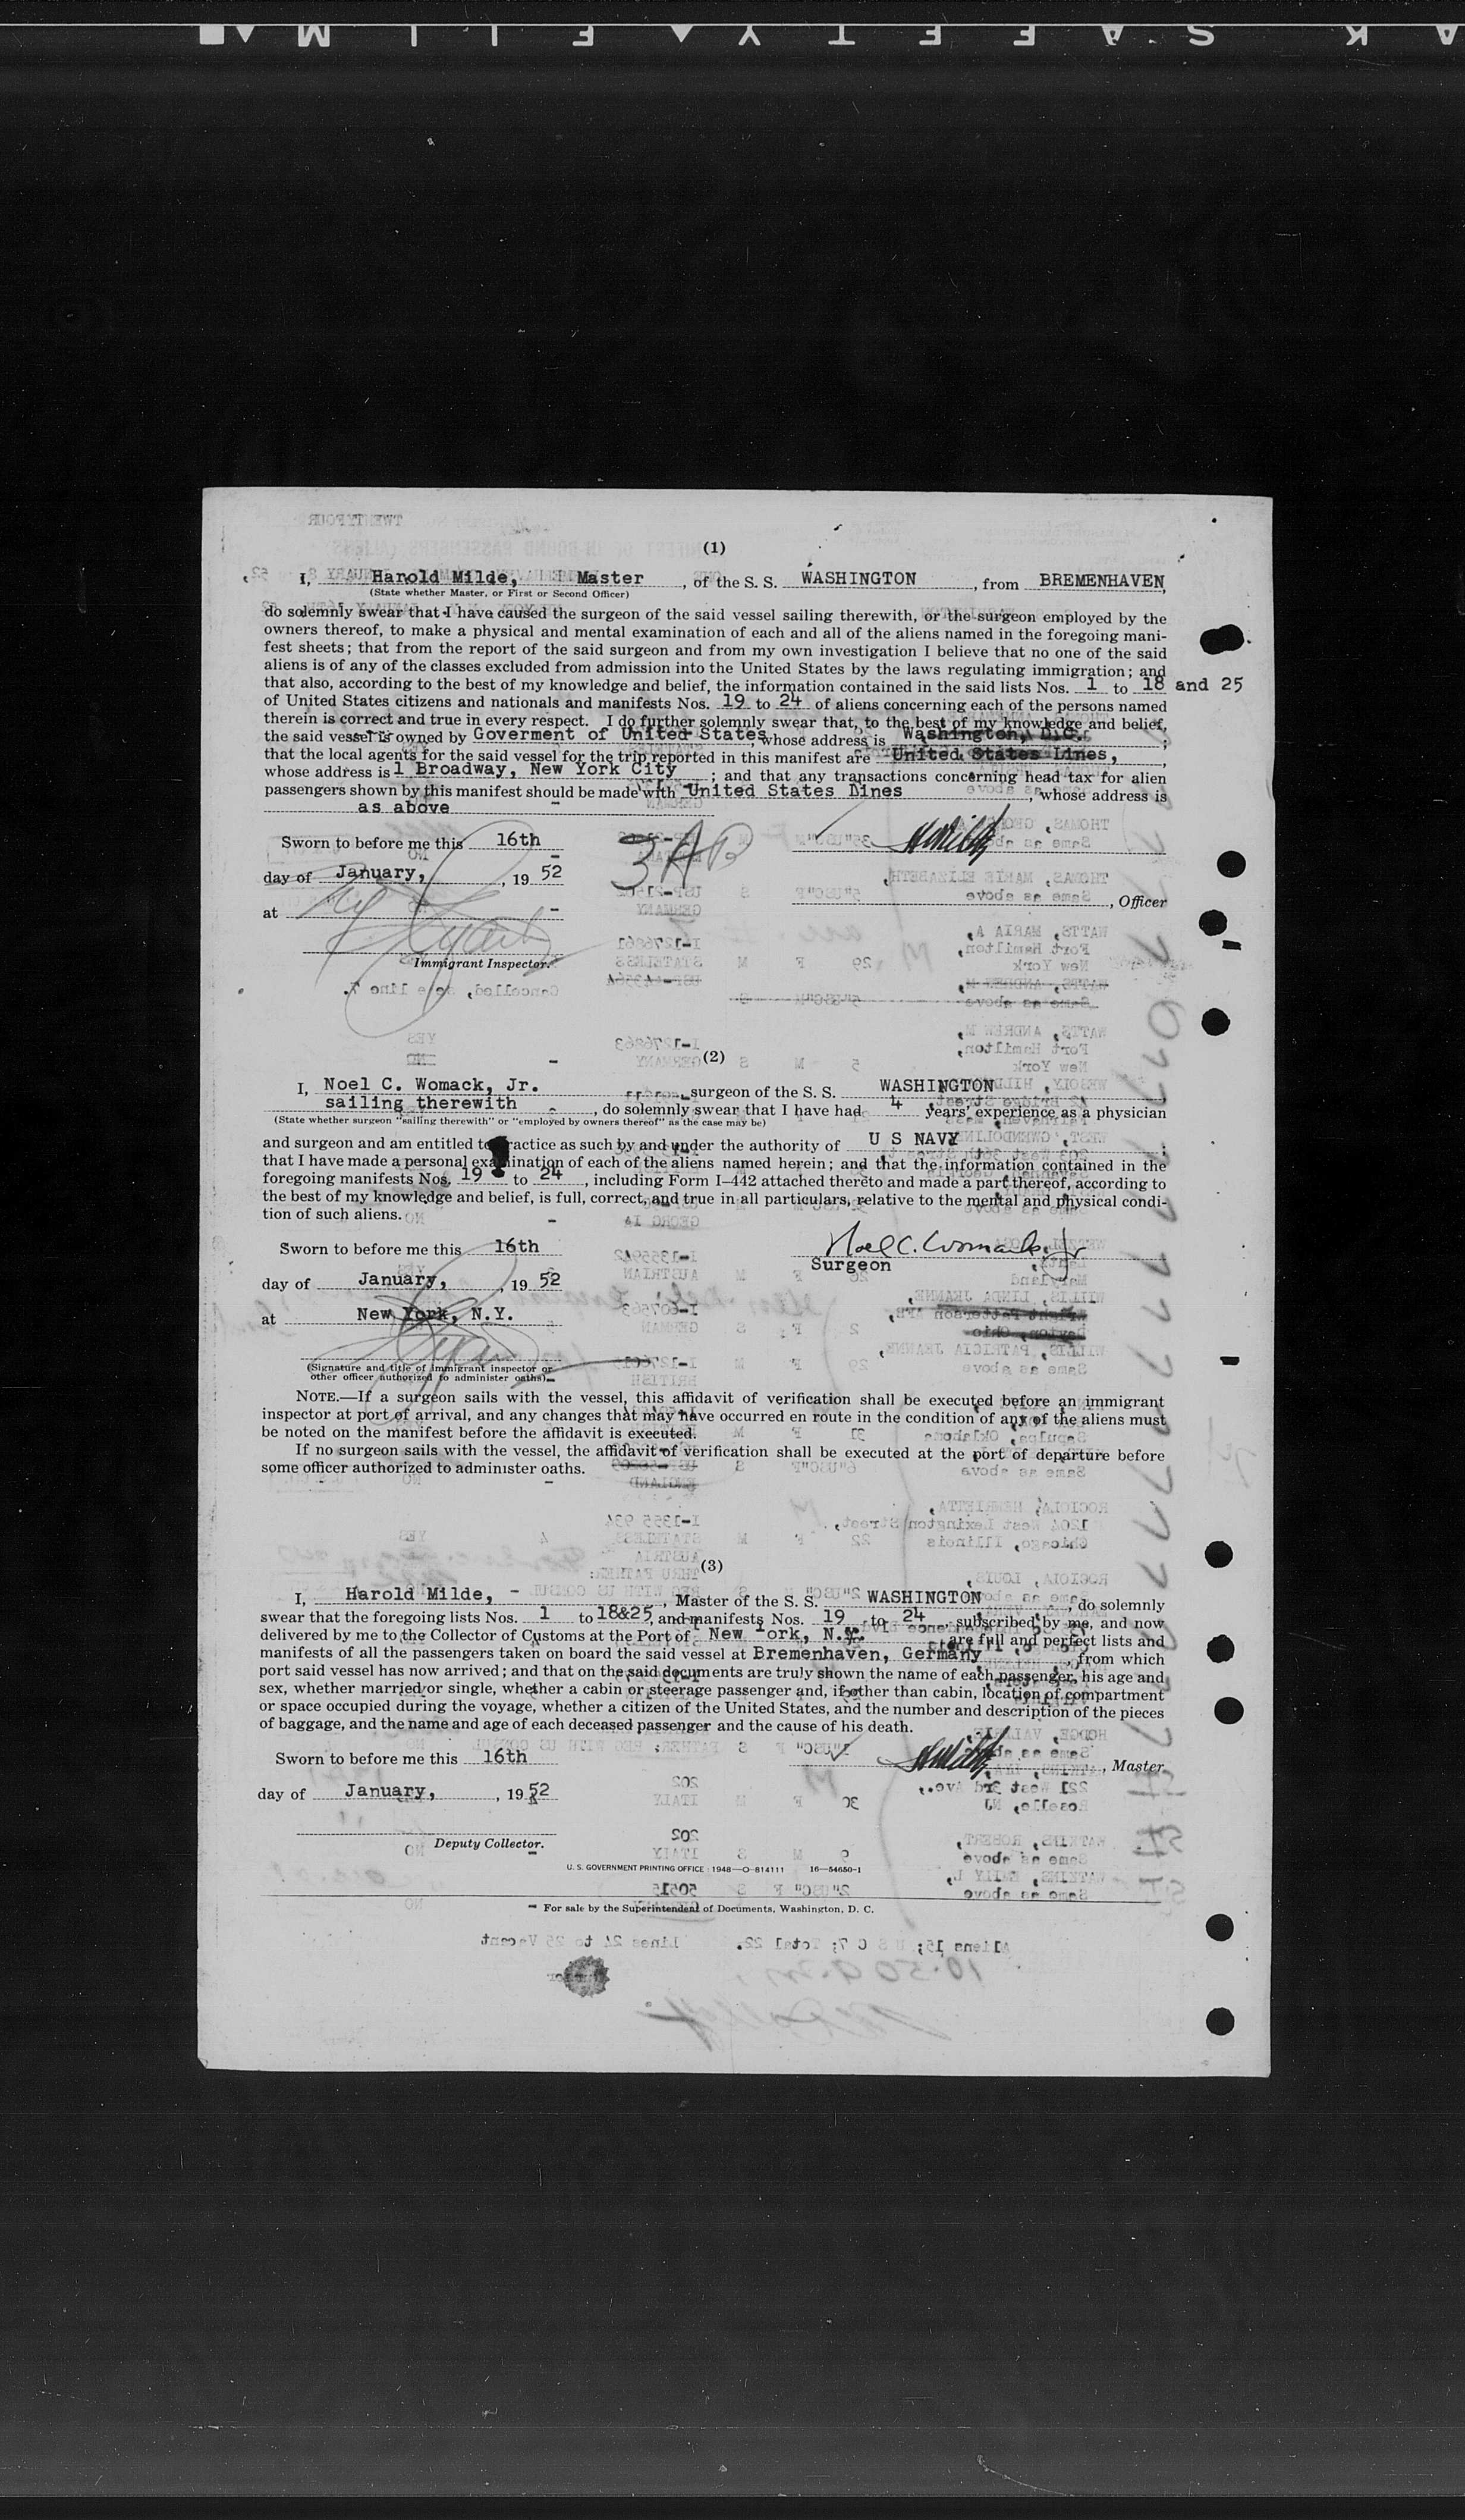 (1)
I, Harold Milde, Master, of the S. S. WASHINGTON, from BREMENHAVEN,
(State whether Master, or First or Second Officer)
do solemnly swear that I have caused the surgeon of the said vessel sailing therewith, or the surgeon employed by the
owners thereof, to make a physical and mental examination of each and all of the aliens named in the foregoing mani-
fest sheets; that from the report of the said surgeon and from my own investigation I believe that no one of the said
aliens is of any of the classes excluded from admission into the United States by the laws regulating immigration; and
that also, according to the best of my knowledge and belief, the information contained in the said lists Nos. 1 to 18 and 25
of United States citizens and nationals and manifests Nos. 19 to 24 of aliens concerning each of the persons named
therein is correct and true in every respect. I do further solemnly swear that, to the best of my knowledge and belief,
the said vessel is owned by Goverment of United States, whose address is Washington, D.C.;
that the local agents for the said vessel for the trip reported in this manifest are United States Lines,,
whose address is 1 Broadway, New York City; and that any transactions concerning head tax for alien
passengers shown by this manifest should be made with United States Lines, whose address is
as above
Sworn to before me this 16th
3 A
day of January,, 19 52
at
, Officer
Immigrant Inspector.
(2)
I, Noel C. Womack, Jr. surgeon of the S. S. WASHINGTON
sailing therewith, do solemnly swear that I have had 4 years' experience as a physician
(State whether surgeon "sailing therewith" or "employed by owners thereof" as the case may be)
and surgeon and am entitled to practice as such by and under the authority of U S NAVY;
that I have made a personal examination of each of the aliens named herein; and that the information contained in the
foregoing manifests Nos. 19 to 24, including Form I-442 attached thereto and made a part thereof, according to
the best of my knowledge and belief, is full, correct, and true in all particulars, relative to the mental and physical condi-
tion of such aliens.
Sworn to before me this 16th
Noel C. Womack, Jr
Surgeon
day of January,, 19 52
at New York, N.Y.
(Signature and title of immigrant inspector or
other officer authorized to administer oaths)
NOTE.—If a surgeon sails with the vessel, this affidavit of verification shall be executed before an immigrant
inspector at port of arrival, and any changes that may have occurred en route in the condition of any of the aliens must
be noted on the manifest before the affidavit is executed.
If no surgeon sails with the vessel, the affidavit of verification shall be executed at the port of departure before
some officer authorized to administer oaths.
(3)
I, Harold Milde, -, Master of the S. S. WASHINGTON, do solemnly
swear that the foregoing lists Nos. 1 to 18&25, and manifests Nos. 19 to 24 subscribed by me, and now
delivered by me to the Collector of Customs at the Port of New York, N.Y. are full and perfect lists and
manifests of all the passengers taken on board the said vessel at Bremenhaven, Germany, from which
port said vessel has now arrived; and that on the said documents are truly shown the name of each passenger, his age and
sex, whether married or single, whether a cabin or steerage passenger and, if other than cabin, location of compartment
or space occupied during the voyage, whether a citizen of the United States, and the number and description of the pieces
of baggage, and the name and age of each deceased passenger and the cause of his death.
Sworn to before me this 16th
, Master
day of January,, 19 52
Deputy Collector.
U. S. GOVERNMENT PRINTING OFFICE : 1948—O-814111 16—54650-1
For sale by the Superintendent of Documents, Washington, D. C.